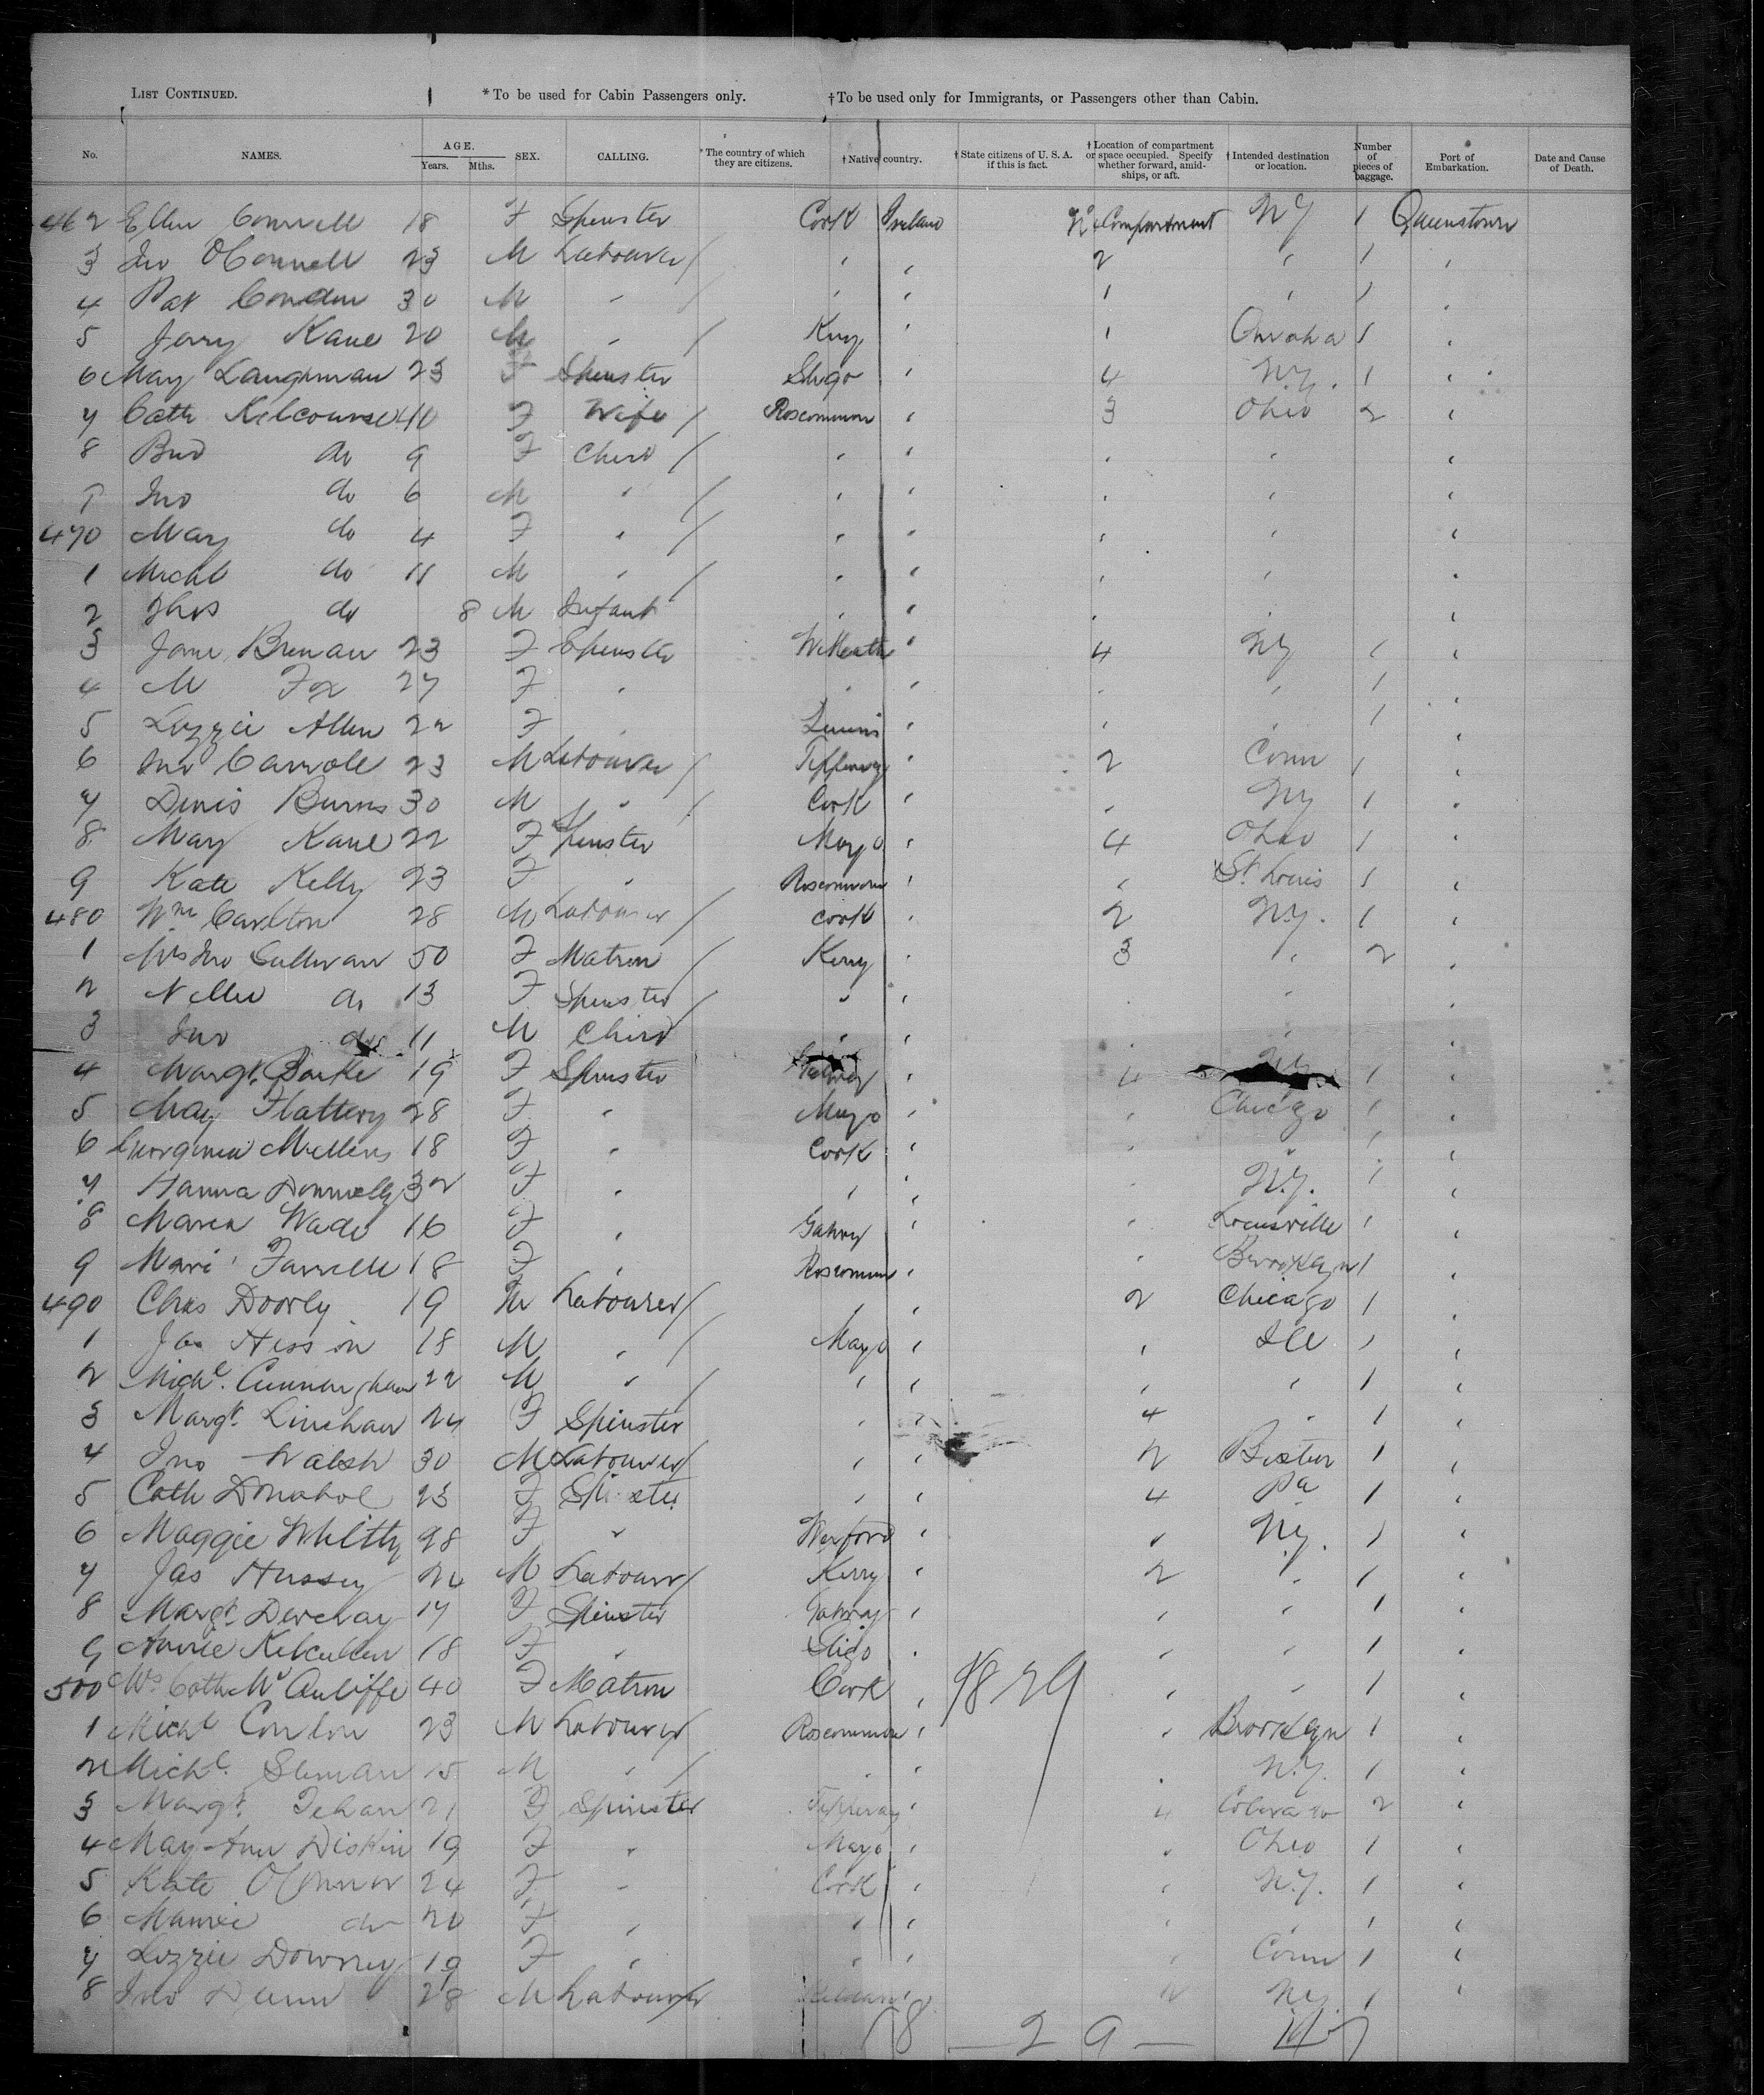 LIST CONTINUED. *To be used for Cabin Passengers only. †To be used only for Immigrants, or Passengers other than Cabin.
No. NAMES. AGE. Years. Mths. SEX. CALLING. *The country of which they are citizens. †Native country. †State citizens of U. S. A. if this is fact. †Location of compartment or space occupied. Specify whether forward, amidships, or aft. †Intended destination or location. Number of pieces of baggage. Port of Embarkation. Date and Cause of Death.
462 Ellen Connell 18 F Spinster Cork Ireland Compartment NY 1 Queenstown
3 Jno OConnell 23 M Labourer / " " 2 " 1 "
4 Pat Condon 30 M " / " " 1 " 1 "
5 Jerry Kane 20 M " / " 1 Omaha 1 "
6 May 23 F Spinster Sligo " 4 N.Y. 1 "
7 Cath 40 F Wife / Roscommon " 3 Ohio 2 "
8 do 9 F Child / " " " " "
9 Jno do 6 M " / " " " " "
470 Mary do 4 F " / " " " " "
1 Michl do 11 M " / " " " " "
2 Thos do 8 M Infant " " " " "
3 Jane Brenan 23 F Spinster WMeath " 4 NY 1 "
4 M Fox 27 F " " " " " 1 "
5 Lizzie Allen 22 F " " " " 1 "
6 Jno Carroll 23 M Labourer / Tipperary " 2 Conn 1 "
7 Denis Burns 30 M " / Cork " " NY 1 "
8 Mary Kane 22 F Spinster Mayo " 4 Ohio 1 "
9 Kate Kelly 23 F " Roscommon " " St. Louis 1 "
480 Wm Carlton 28 M Labourer / Cork " 2 N.Y. 1 "
1 Mrs Jno Sullivan 50 F Matron / Kerry " 3 " 2 "
2 Nellie do 13 F Spinster / " " " " "
3 Jno do 11 M Child " " " " "
4 Margt. Burke 19 F Spinster Galway " 4 NY 1 "
5 May Flattery 28 F " Mayo " " Chicago 1 "
6 Georgina Mullins 18 F " Cork " " " 1 "
7 Hanna Donnelly 32 F " " " " N.Y. 1 "
8 Maria Wade 16 F " Galway " Louisville 1 "
9 Farrell 18 F " Roscommon " " Brooklyn 1 "
490 Chas Doorly 19 M Labourer / " " 2 Chicago 1 "
1 Jas Hession 18 M " / Mayo " " Ill 1 "
2 Michl. Cunningham 22 M " / " " " " 1 "
3 Margt. Linehan 24 F Spinster " " 4 " 1 "
4 Jno Walsh 30 M Labourer / " " 2 Boston 1 "
5 Cath Donahoe 23 F Spinster " " 4 Pa 1 "
6 Maggie Whitty 28 F " Wexford " " N.Y. 1 "
7 Jas Hussey 24 M Labourer / Kerry " 2 " 1 "
8 Margt. 17 F Spinster Galway " " " 1 "
9 Annie Kilcullen 18 F " Sligo " " " 1 "
500 Mrs Cath McAuliffe 40 F Matron Cork " 1829 " " 1 "
1 Michl Conlon 23 M Labourer / Roscommon " " Brooklyn 1 "
2 Michl. 15 M " / " " N.Y. 1 "
3 Margt. Tehan 21 F Spinster Tipperary " 4 Colorado 2 "
4 May Ann Diskin 19 F " Mayo " " Ohio 1 "
5 Kate OConnor 24 F " Cork " " N.Y. 1 "
6 do 20 F " " " " " 1 "
7 Lizzie Downey 19 F " " " " Conn 1 "
8 Jno Dunn 28 M Labourer / " 2 NY 1 "
18 — 29 — 47